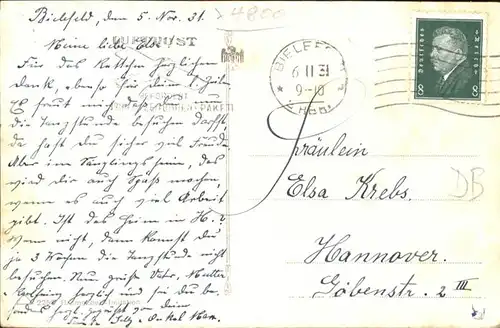 Bielefeld, den 5. Nov. 31.
4800
Meine liebe Elsa!
LUFTPOST
Für das Kettchen herzlichen
Dank, ebenso für Deine
Es freut mich, daß nun
die Tanzstunde besuchen darfst,
da hast Du sicher viel Freude.
Aber im Säuglingsheim, das
wird dir auch Spaß machen,
wenn es auch viel Arbeit
gibt. Ist das Heim in H.?
Wenn nicht, dann kannst Du
je 3 Wochen die Tanzstunde nicht
besuchen. Nun grüße Vater, Mutter
herzlich und sei Du be-
sonders herzl. gegrüßt von Deiner
Tante Onkel
BIELEFELD
6 11 31
9-10
Deutsches Reich
8 8
Fräulein
Elsa Krebs.
DB
Hannover.
Göbenstr. 2 III